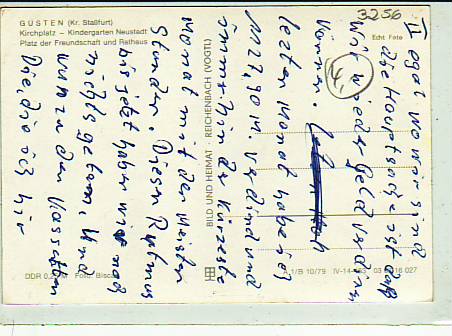 3256
GÜSTEN (Kr. Staßfurt)
Kirchplatz – Kindergarten Neustadt
Platz der Freundschaft und Rathaus
Echt Foto
BILD UND HEIMAT · REICHENBACH (VOGTL)
DDR 0,2 Foto: Bisc
A 1/B 10/79 IV-14-483 03 016 027
II
egal wo wir sind
die Hauptsache ist daß
wir wieder Geld verdienen
können.
letzten Monat habe ich
1127,90 M. verdient und
immerhin der kürzeste
Monat mit den wenigsten
Stunden. Diesen Rythmus
bis jetzt haben wir noch
nichts getan. Und
nun zu den Kassetten
Die, die ich hir
4,-